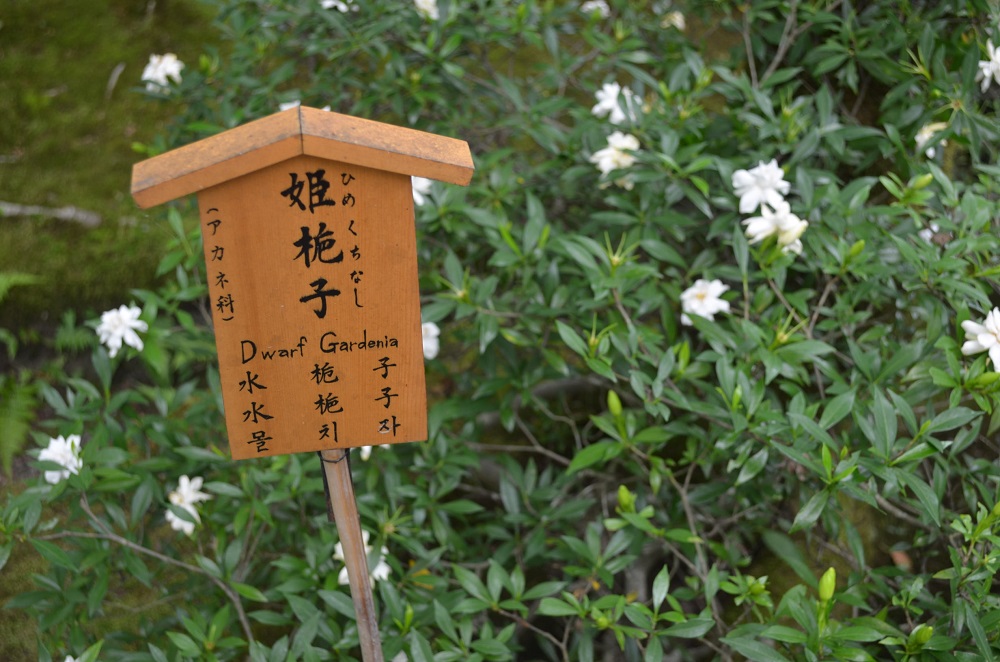 姫梔子
ひめくちなし
(アカネ科)
Dwarf Gardenia
水 梔 子
水 梔 子
물 치 자